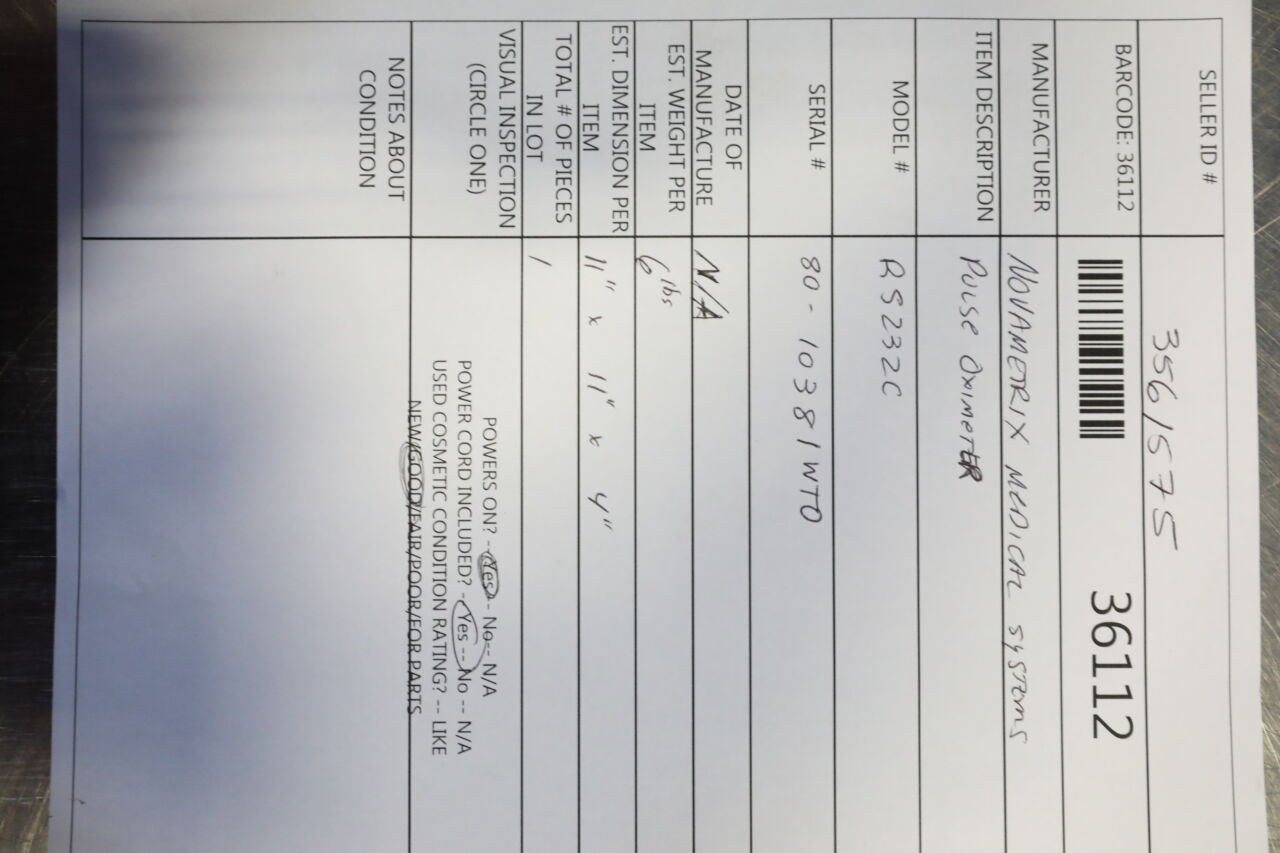 SELLER ID # 3561575
BARCODE: 36112 36112
MANUFACTURER NOVAMETRIX MEDICAL SYSTEMS
ITEM DESCRIPTION PULSE OXIMETER
MODEL # RS232C
SERIAL # 80-10381WTO
DATE OF
MANUFACTURE N/A
EST. WEIGHT PER
ITEM 6 lbs
EST. DIMENSION PER
ITEM 11" x 11" x 4"
TOTAL # OF PIECES
IN LOT 1
VISUAL INSPECTION
(CIRCLE ONE)
POWERS ON? -- Yes -- No-- N/A
POWER CORD INCLUDED? -- Yes -- No -- N/A
USED COSMETIC CONDITION RATING? -- LIKE
NEW/GOOD/FAIR/POOR/FOR PARTS
NOTES ABOUT
CONDITION